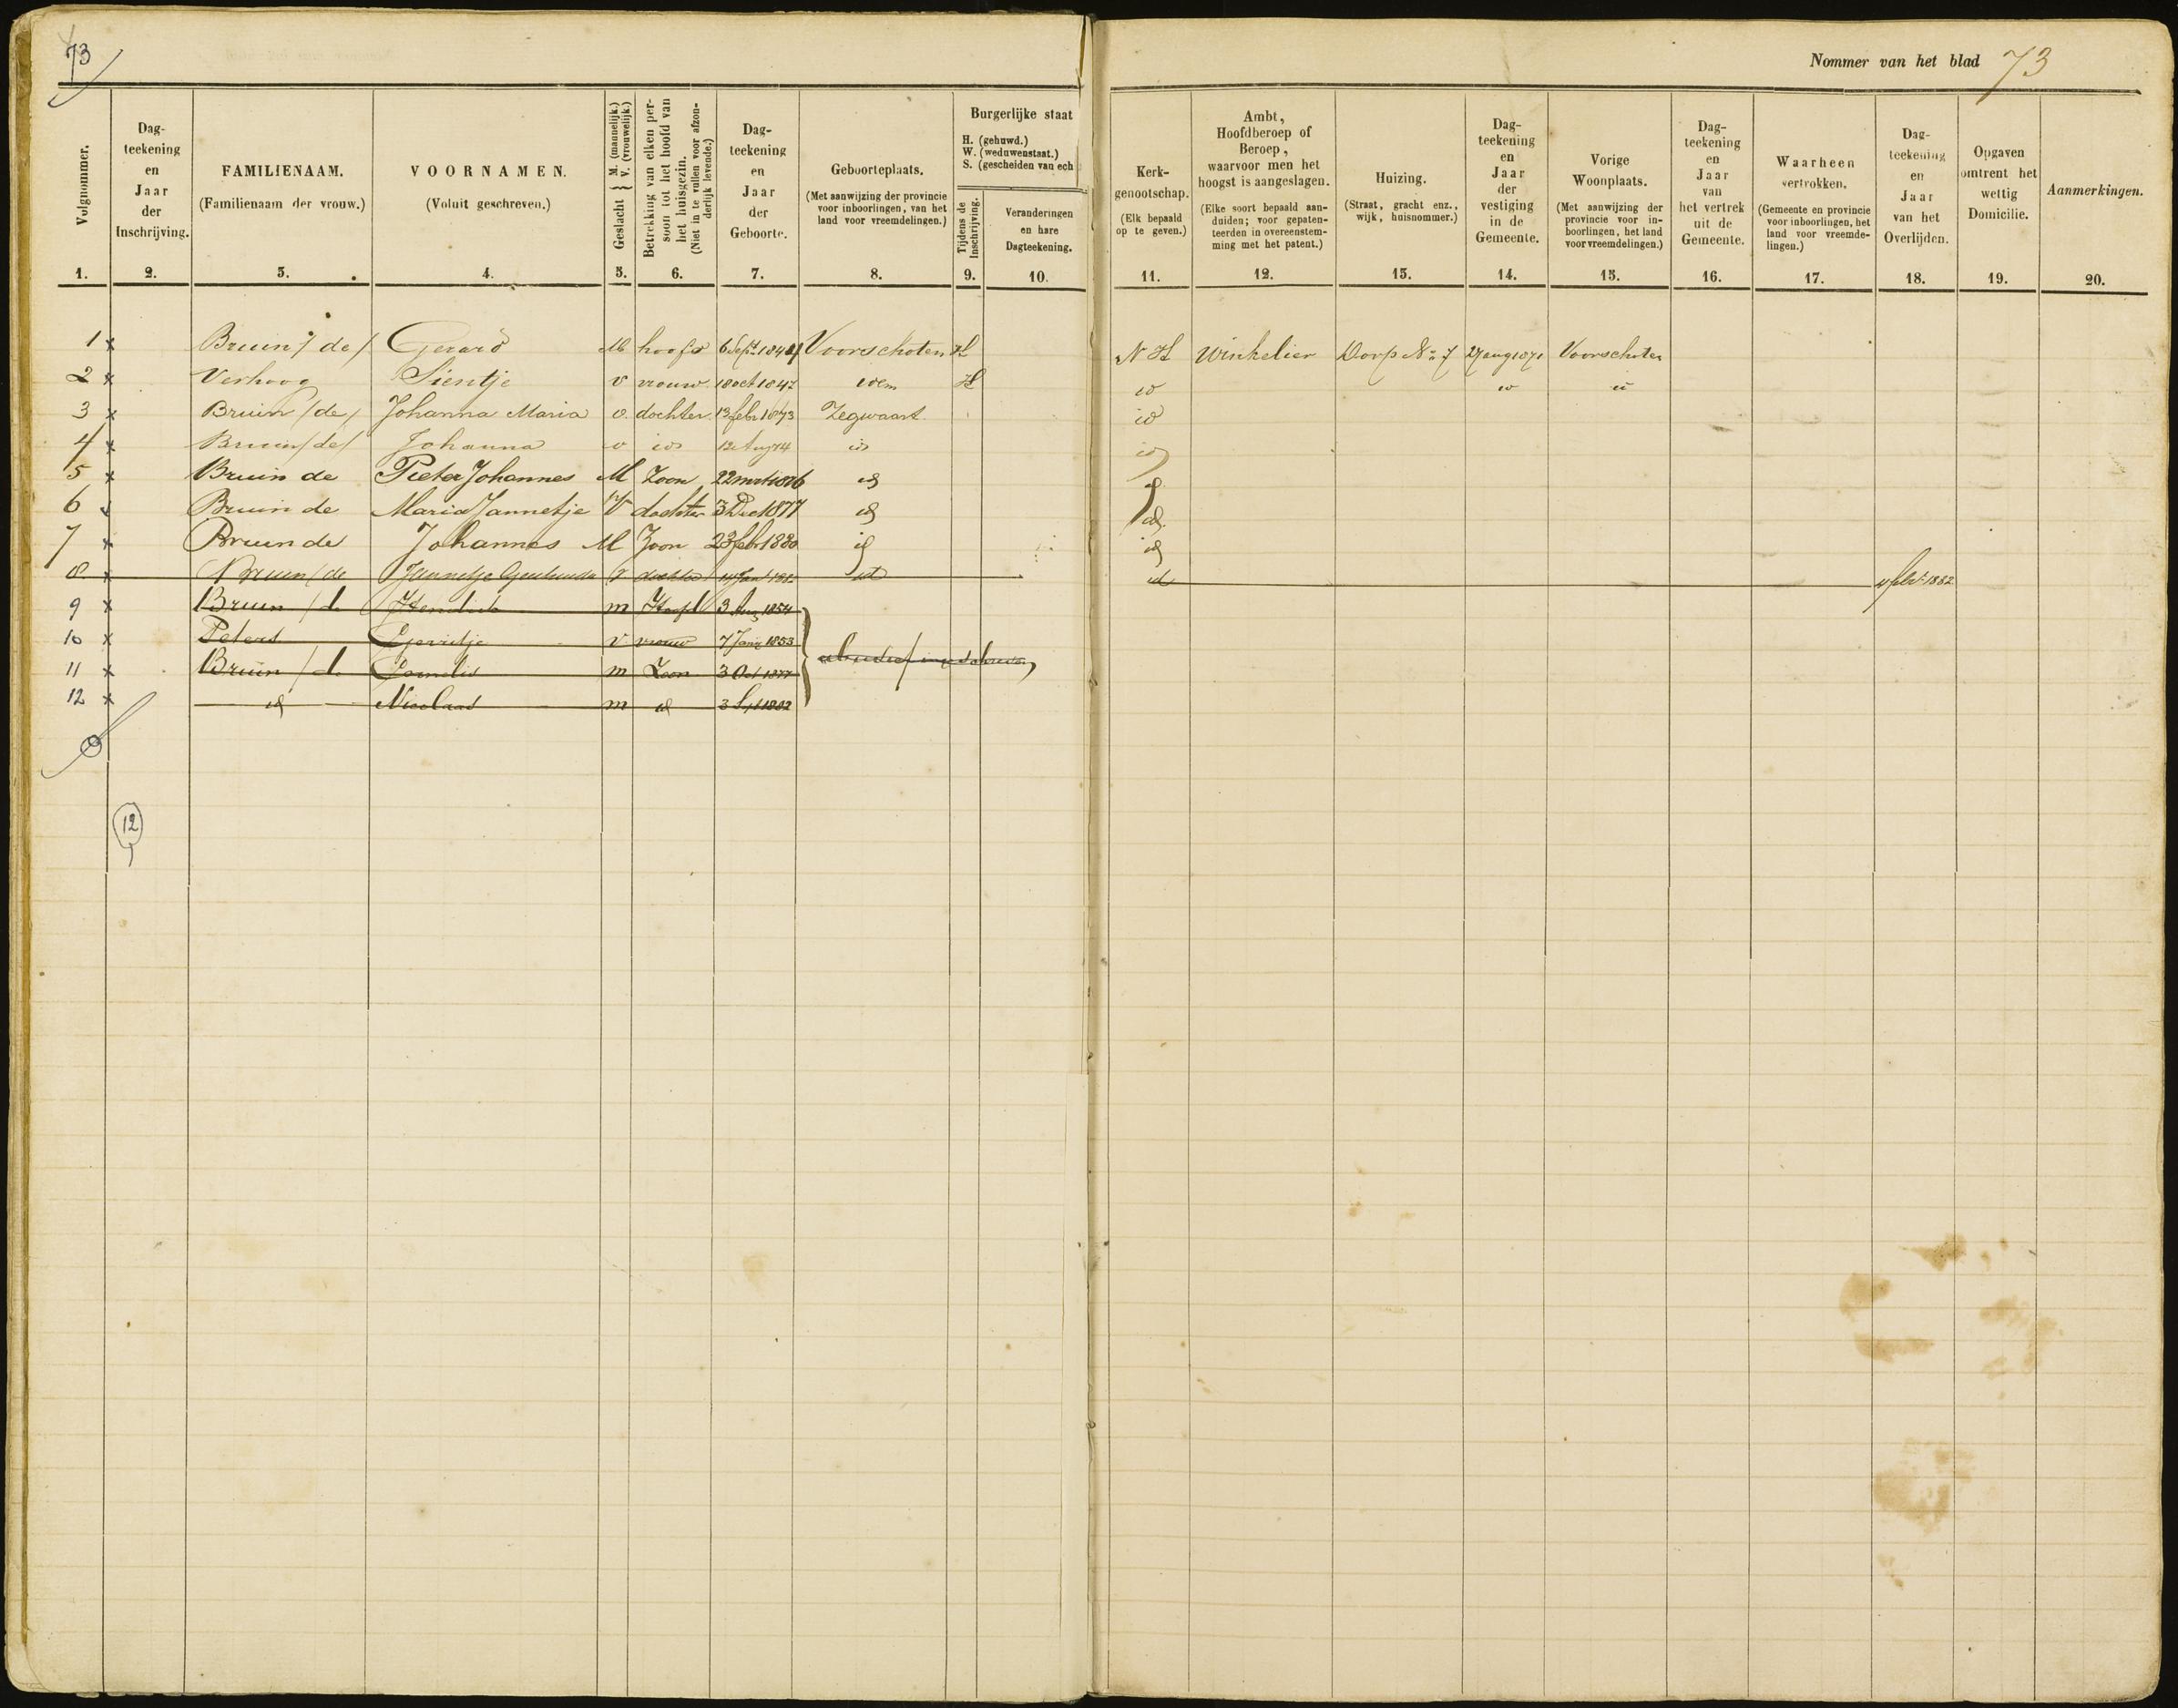 73
Nommer van het blad 73
Volgnommer.
Dag-
teekening
en
Jaar
der
Inschrijving.
FAMILIENAAM.
(Familienaam der vrouw.)
VOORNAMEN.
(Voluit geschreven.)
Geslacht { M. (mannelijk.) V. (vrouwelijk.)
Betrekking van elken per-
soon tot het hoofd van
het huisgezin.
(Niet in te vullen voor afzon-
derlijk levende.)
Dag-
teekening
en
Jaar
der
Geboorte.
Geboorteplaats.
(Met aanwijzing der provincie
voor inboorlingen, van het
land voor vreemdelingen.)
Burgerlijke staat
H. (gehuwd.)
W. (weduwenstaat.)
S. (gescheiden van ech
Tijdens de
Inschrijving.
Veranderingen
en hare
Dagteekening.
Kerk-
genootschap.
(Elk bepaald
op te geven.)
Ambt,
Hoofdberoep of
Beroep,
waarvoor men het
hoogst is aangeslagen.
(Elke soort bepaald aan-
duiden; voor gepaten-
teerden in overeenstem-
ming met het patent.)
Huizing.
(Straat, gracht enz.,
wijk, huisnommer.)
Dag-
teekening
en
Jaar
der
vestiging
in de
Gemeente.
Vorige
Woonplaats.
(Met aanwijzing der
provincie voor in-
boorlingen, het land
voor vreemdelingen.)
Dag-
teekening
en
Jaar
van
het vertrek
uit de
Gemeente.
Waarheen
vertrokken.
(Gemeente en provincie
voor inboorlingen, het
land voor vreemde-
lingen.)
Dag-
teekening
en
Jaar
van het
Overlijden.
Opgaven
omtrent het
wettig
Domicilie.
Aanmerkingen.
1. 2. 3. 4. 5. 6. 7. 8. 9. 10. 11. 12. 13. 14. 15. 16. 17. 18. 19. 20.
1 x Bruin / de / Gerard M hoofd 6 Sept. Voorschoten H N H Winkelier Dorp No 7 27 aug 1871 Voorschoten
2 x Verhoog Sientje v vrouw 18 oct 1847 idem H id id id
3 x Bruin / de / Johanna Maria v. dochter 13 febr 1873 Zegwaart id
4 x Bruin / de / Johanna v id 12 Aug 74 id id
5 x Bruin de Pieter Johannes M Zoon 22 mrt 1876 id id
6 Bruin de Maria Jannetje V dochter 3 Dec 1877 id id
7 x Bruin de Johannes M Zoon 23 febr 1880 id id
8 x Bruin / de Jannetje v dochter id id 4 febr. 1882
9 x Bruin / de Hendrik m Hoofd 3 Aug 1854
10 x Peters Gerritje v vrouw 7 Jan 1853
11 x Bruin / de Cornelis m Zoon 3 Oct 1877
12 x id Nicolaas m id 3 1882
12